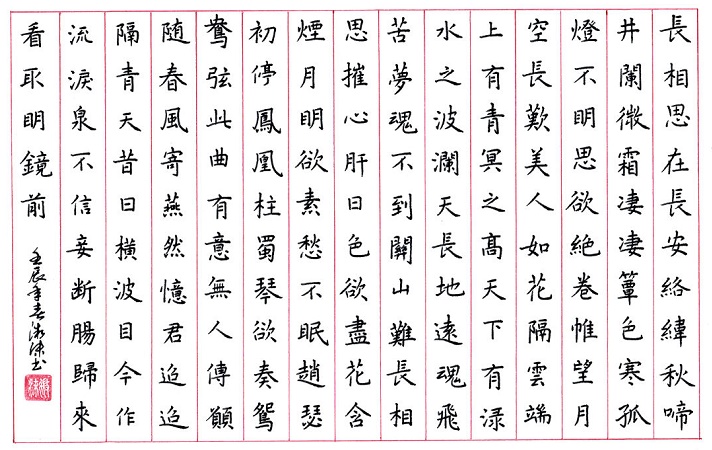 長相思在長安絡緯秋啼
井闌微霜凄凄簟色寒孤
燈不明思欲絶卷帷望月
空長歎美人如花隔雲端
上有青冥之髙天下有淥
水之波瀾天長地遠魂飛
苦夢魂不到關山難長相
思摧心肝日色欲盡花含
煙月明欲素愁不眠趙瑟
初停鳳凰柱蜀琴欲奏鴛
鴦弦此曲有意無人傳願
随春風寄燕然憶君迢迢
隔青天昔日横波目今作
流淚泉不信妾断腸歸來
看取明鏡前
壬辰年春书